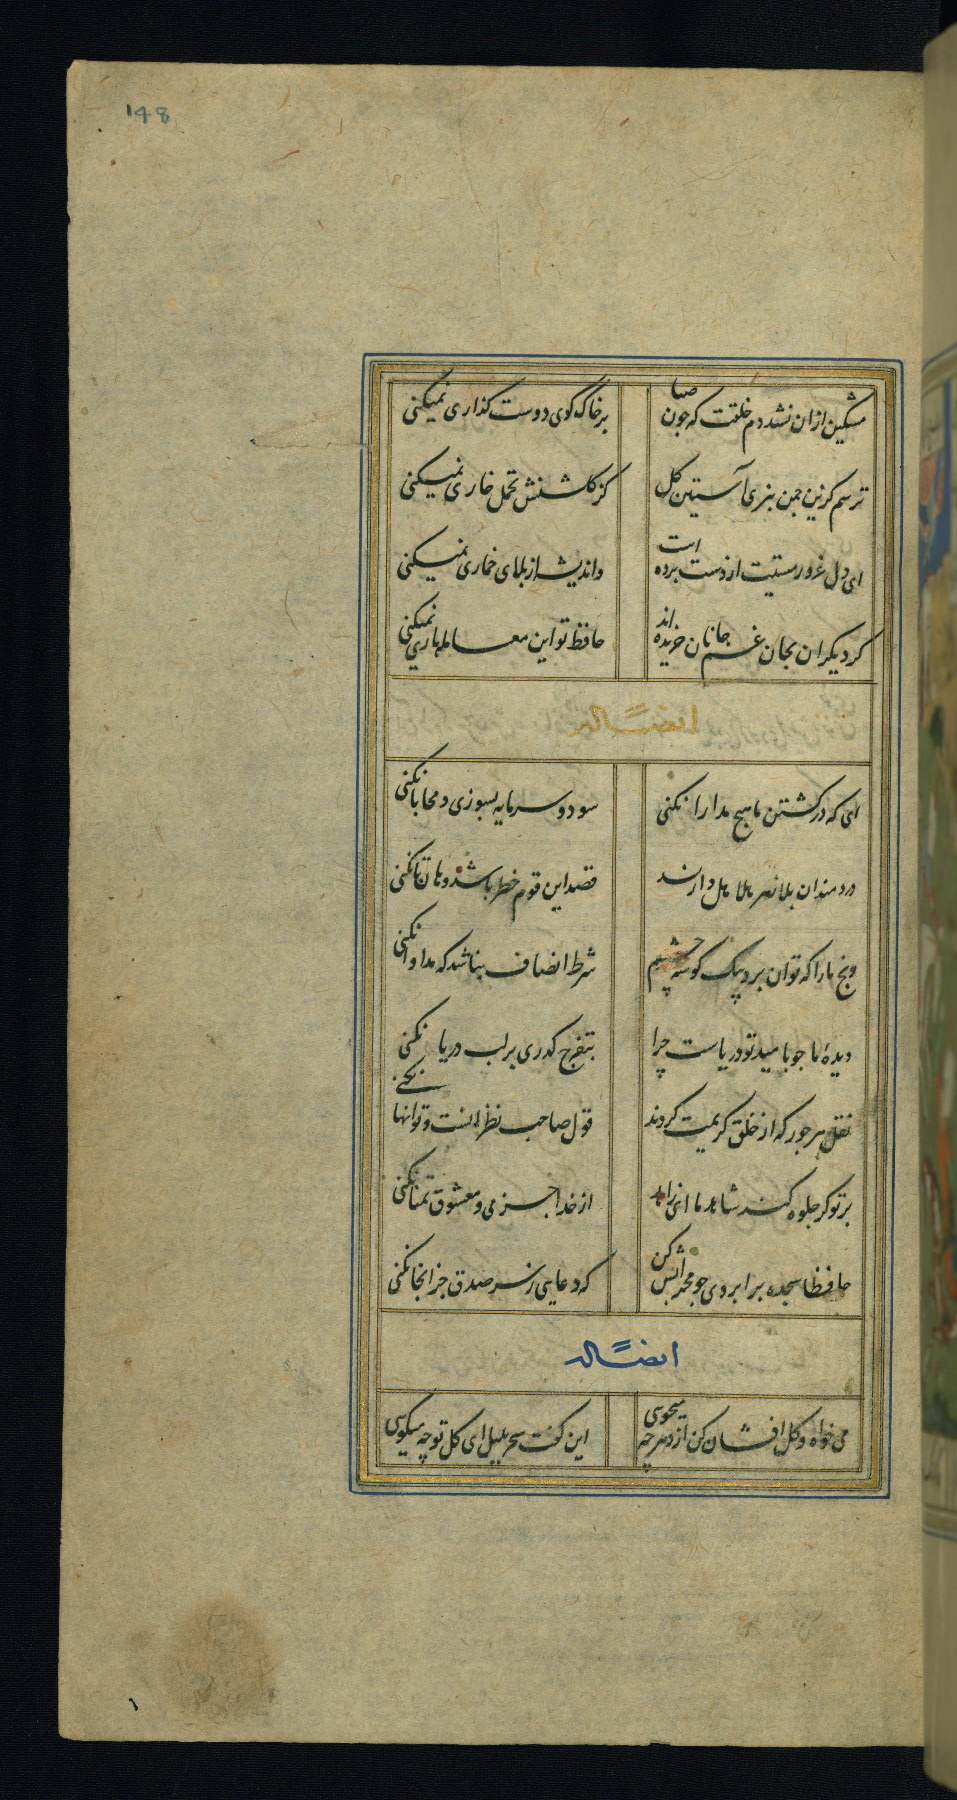 148
مشکین ازان نشد دم خلقت که جون صبا
بر خاک کوی دوست کذاری نمیکنی
ترسم کزین جمن نبری آستین کل
کز کلشنش تحمل خاری نمیکنی
ای دل غرور مستیت از دست برده است
واندیشه از بلای خماری نمیکنی
کر دیکران بجان غم جانان خریده اند
حافظ تو این معامله باری نمیکنی
ایضاً له
ای که در کشتن ما هیچ مدارا نکنی
سود و سرمایه بسوزی و محابا نکنی
دردمندان بلا زهر هلاهل دارند
قصد این قوم خطر باشد و هان تا نکنی
رنج ما را که توان برد بیک کوشه چشم
شرط انصاف نباشد که مداوا نکنی
دیدهٔ ما جو بامید تو دریاست چرا
بتفرج کذری بر لب دریا نکنی
نقل هر جور که از خلق کریمت کردند
قول صاحب نظر انست و تو انها نکنی
بر تو کر جلوه کند شاهد ما ای زاهد
از خدا جز می و معشوق تمنا نکنی
حافظا سجده بر ابروی جو محرابش کن
که دعایی ز سر صدق جز انجا نکنی
ایضاً له
می خواه و کل افشان کن از دهر چه میجویی
این کفت سحر بلبل ای کل تو چه میکویی